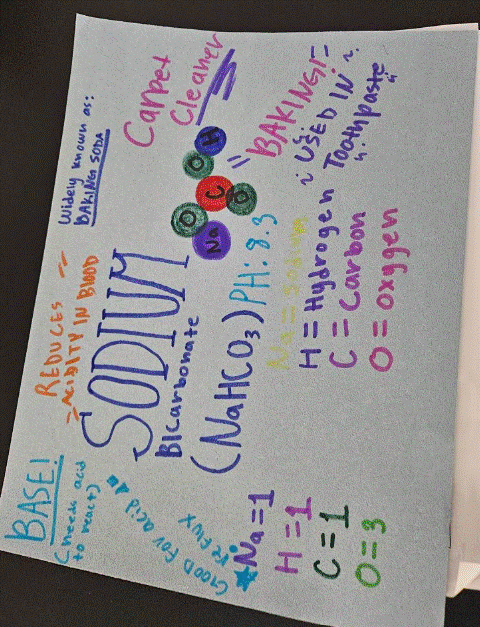 BASE!
(needs acid
to react)
~ REDUCES ~
~ ACIDITY IN BLOOD
Widely known as:
BAKING SODA
Carpet
Cleaner
SODIUM
Bicarbonate
(NaHCO3) PH: 8.3
H
O
C
O
O
Na
"BAKING!"
~ USED IN ~
" Toothpaste "
GOOD FOR acid
REFLUX
Na=1
H=1
C=1
O=3
Na = Sodium
H=Hydrogen
C=Carbon
O=Oxygen